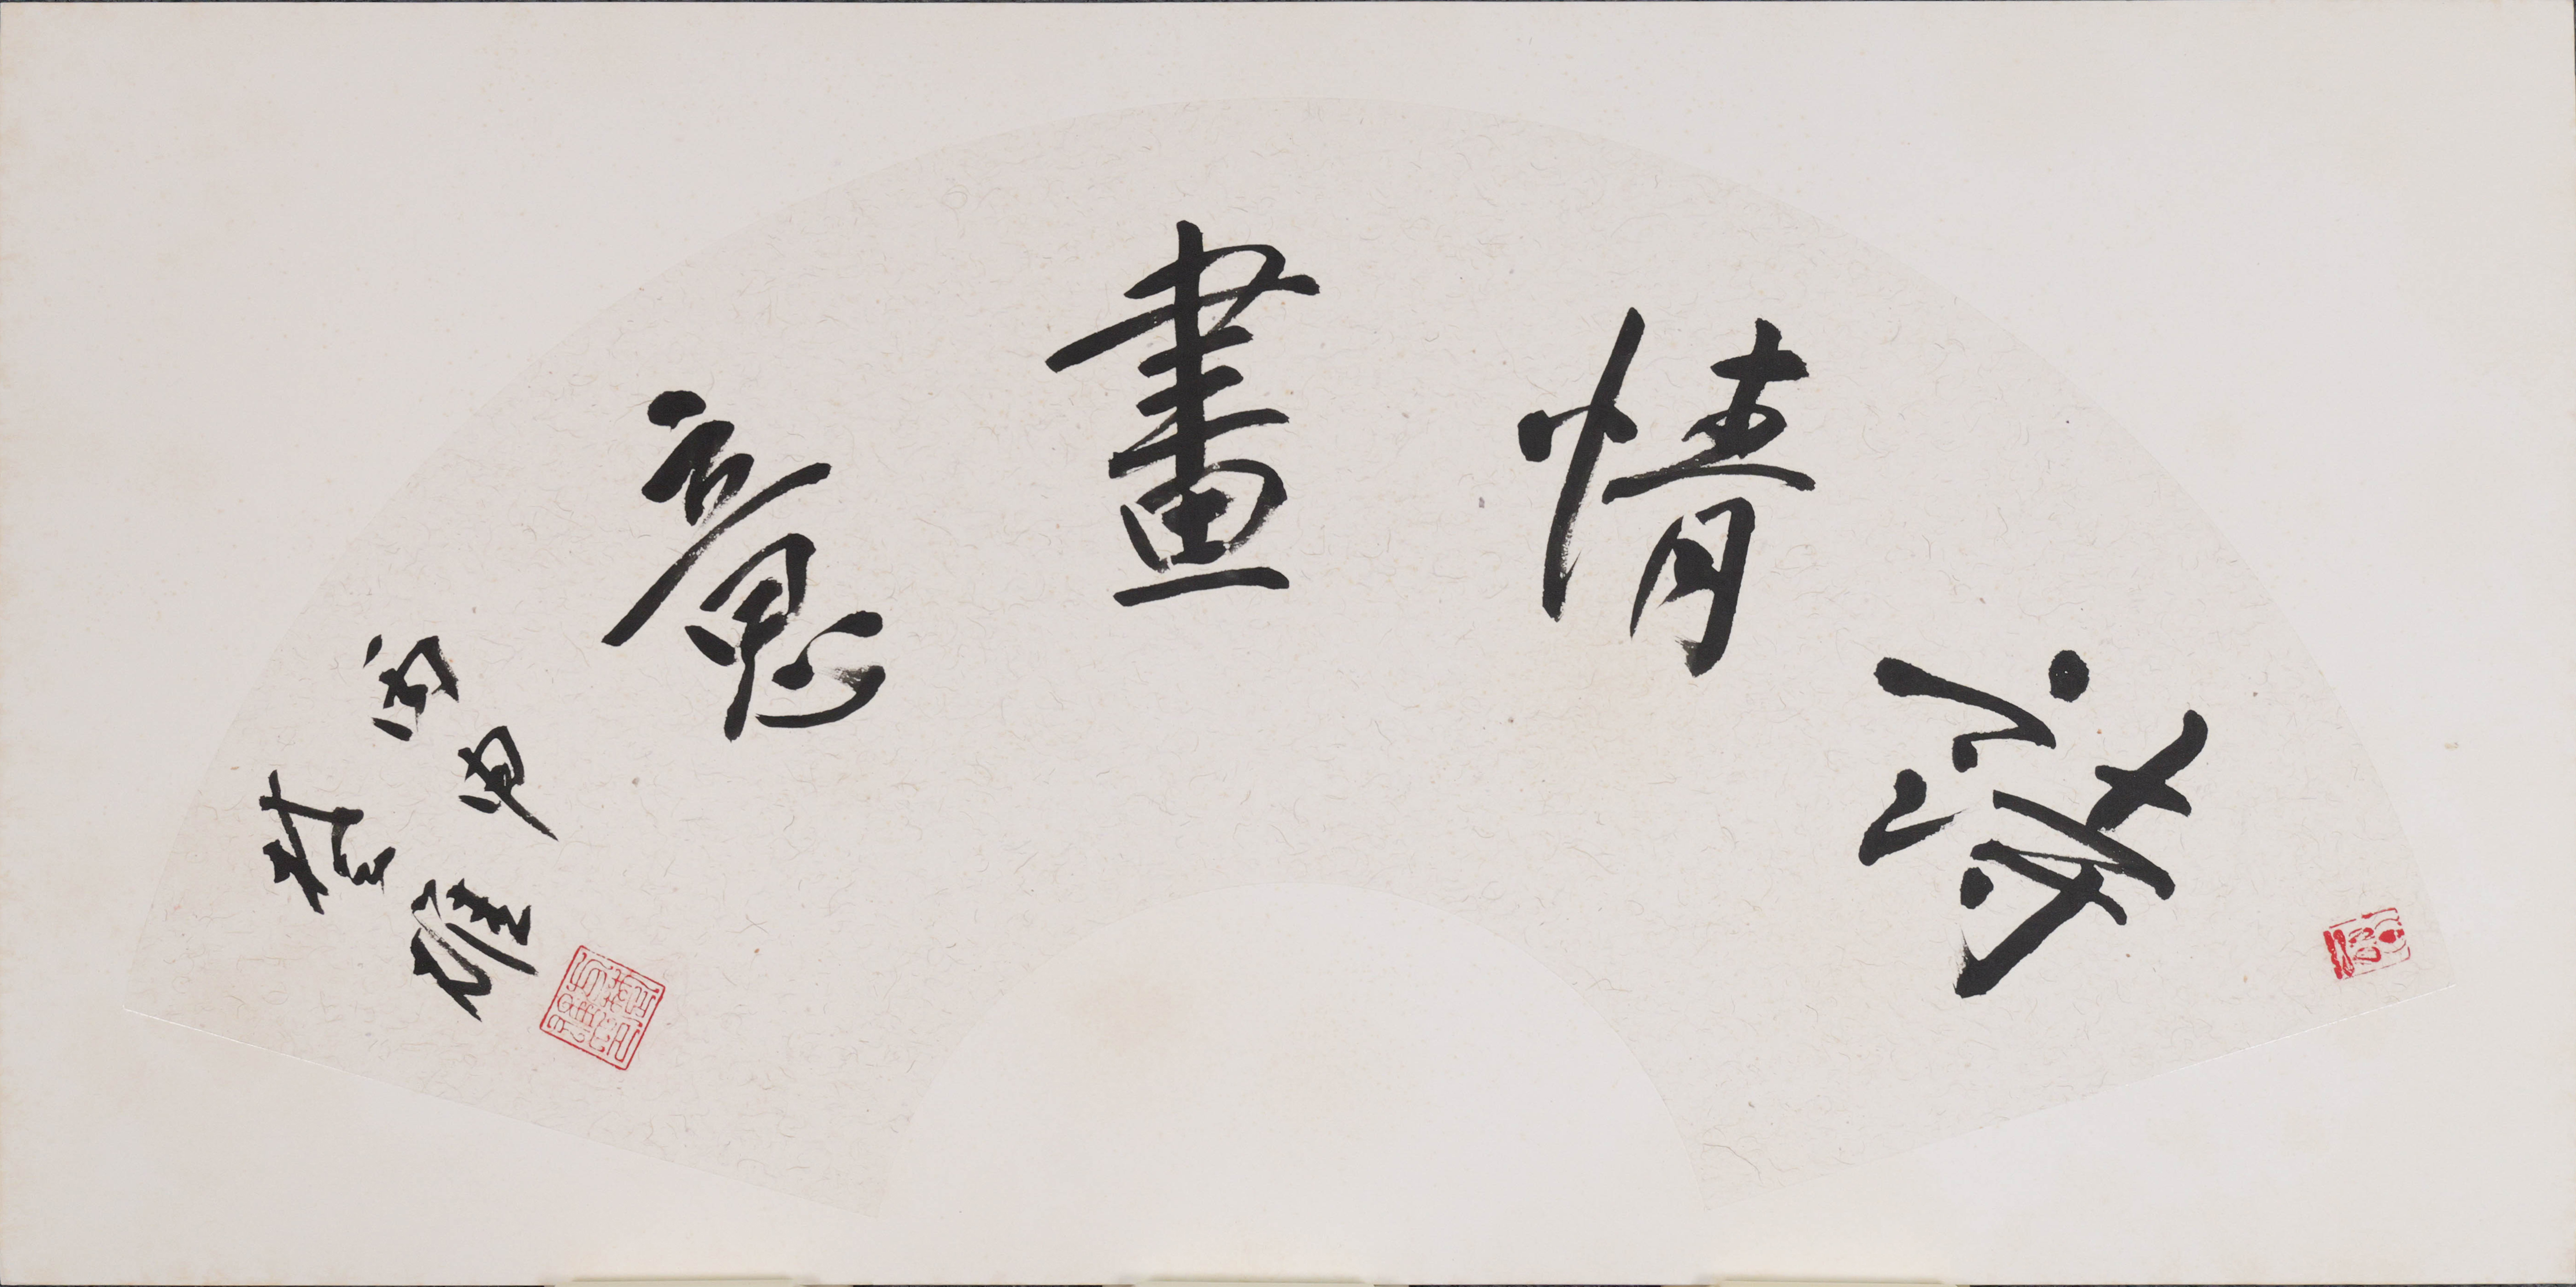 詩情畫意
丙申